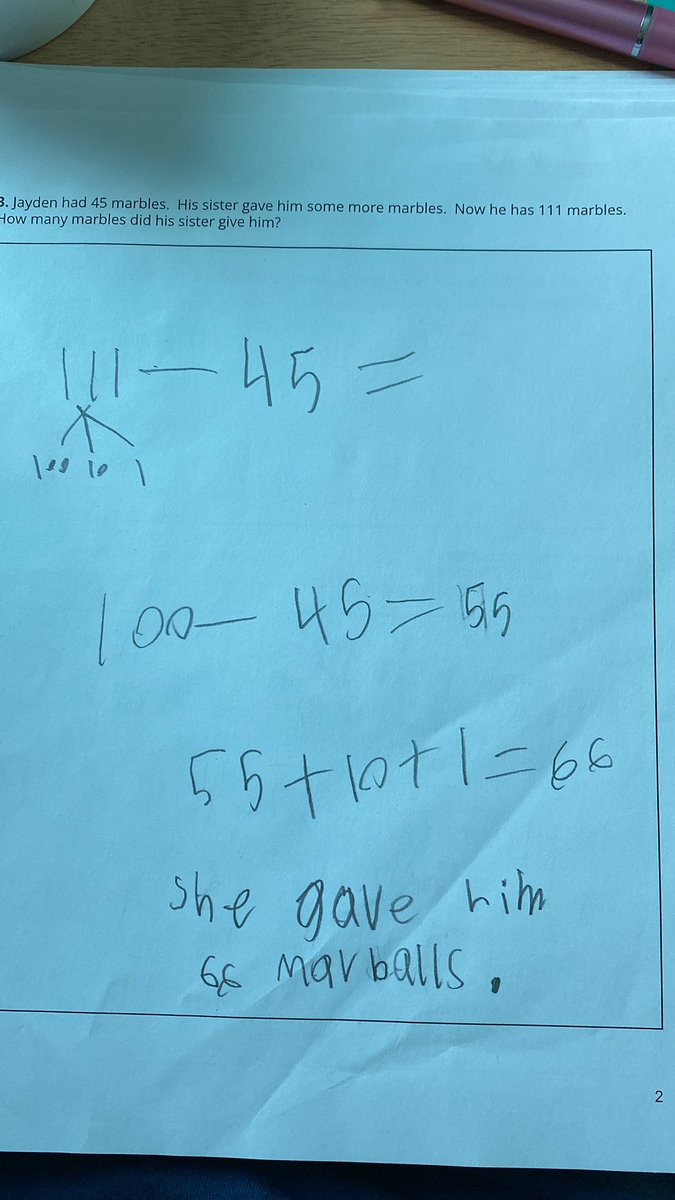 3. Jayden had 45 marbles. His sister gave him some more marbles. Now he has 111 marbles.
How many marbles did his sister give him?
111 — 45 =
100 10 1
100 — 45 = 55
55 + 10 + 1 = 66
she gave him
66 marballs.
2